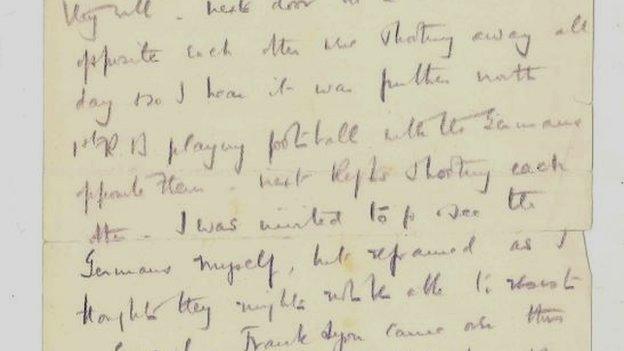 very well - next door the 2
opposite each other were shooting away all
day & so I hear it was further north
1st R B playing football with the Germans
opposite them - next Regts shooting each
other - I was invited to go & see the
Germans myself, but refrained as I
thought they might not be able to resist
Frank Lyon came over this